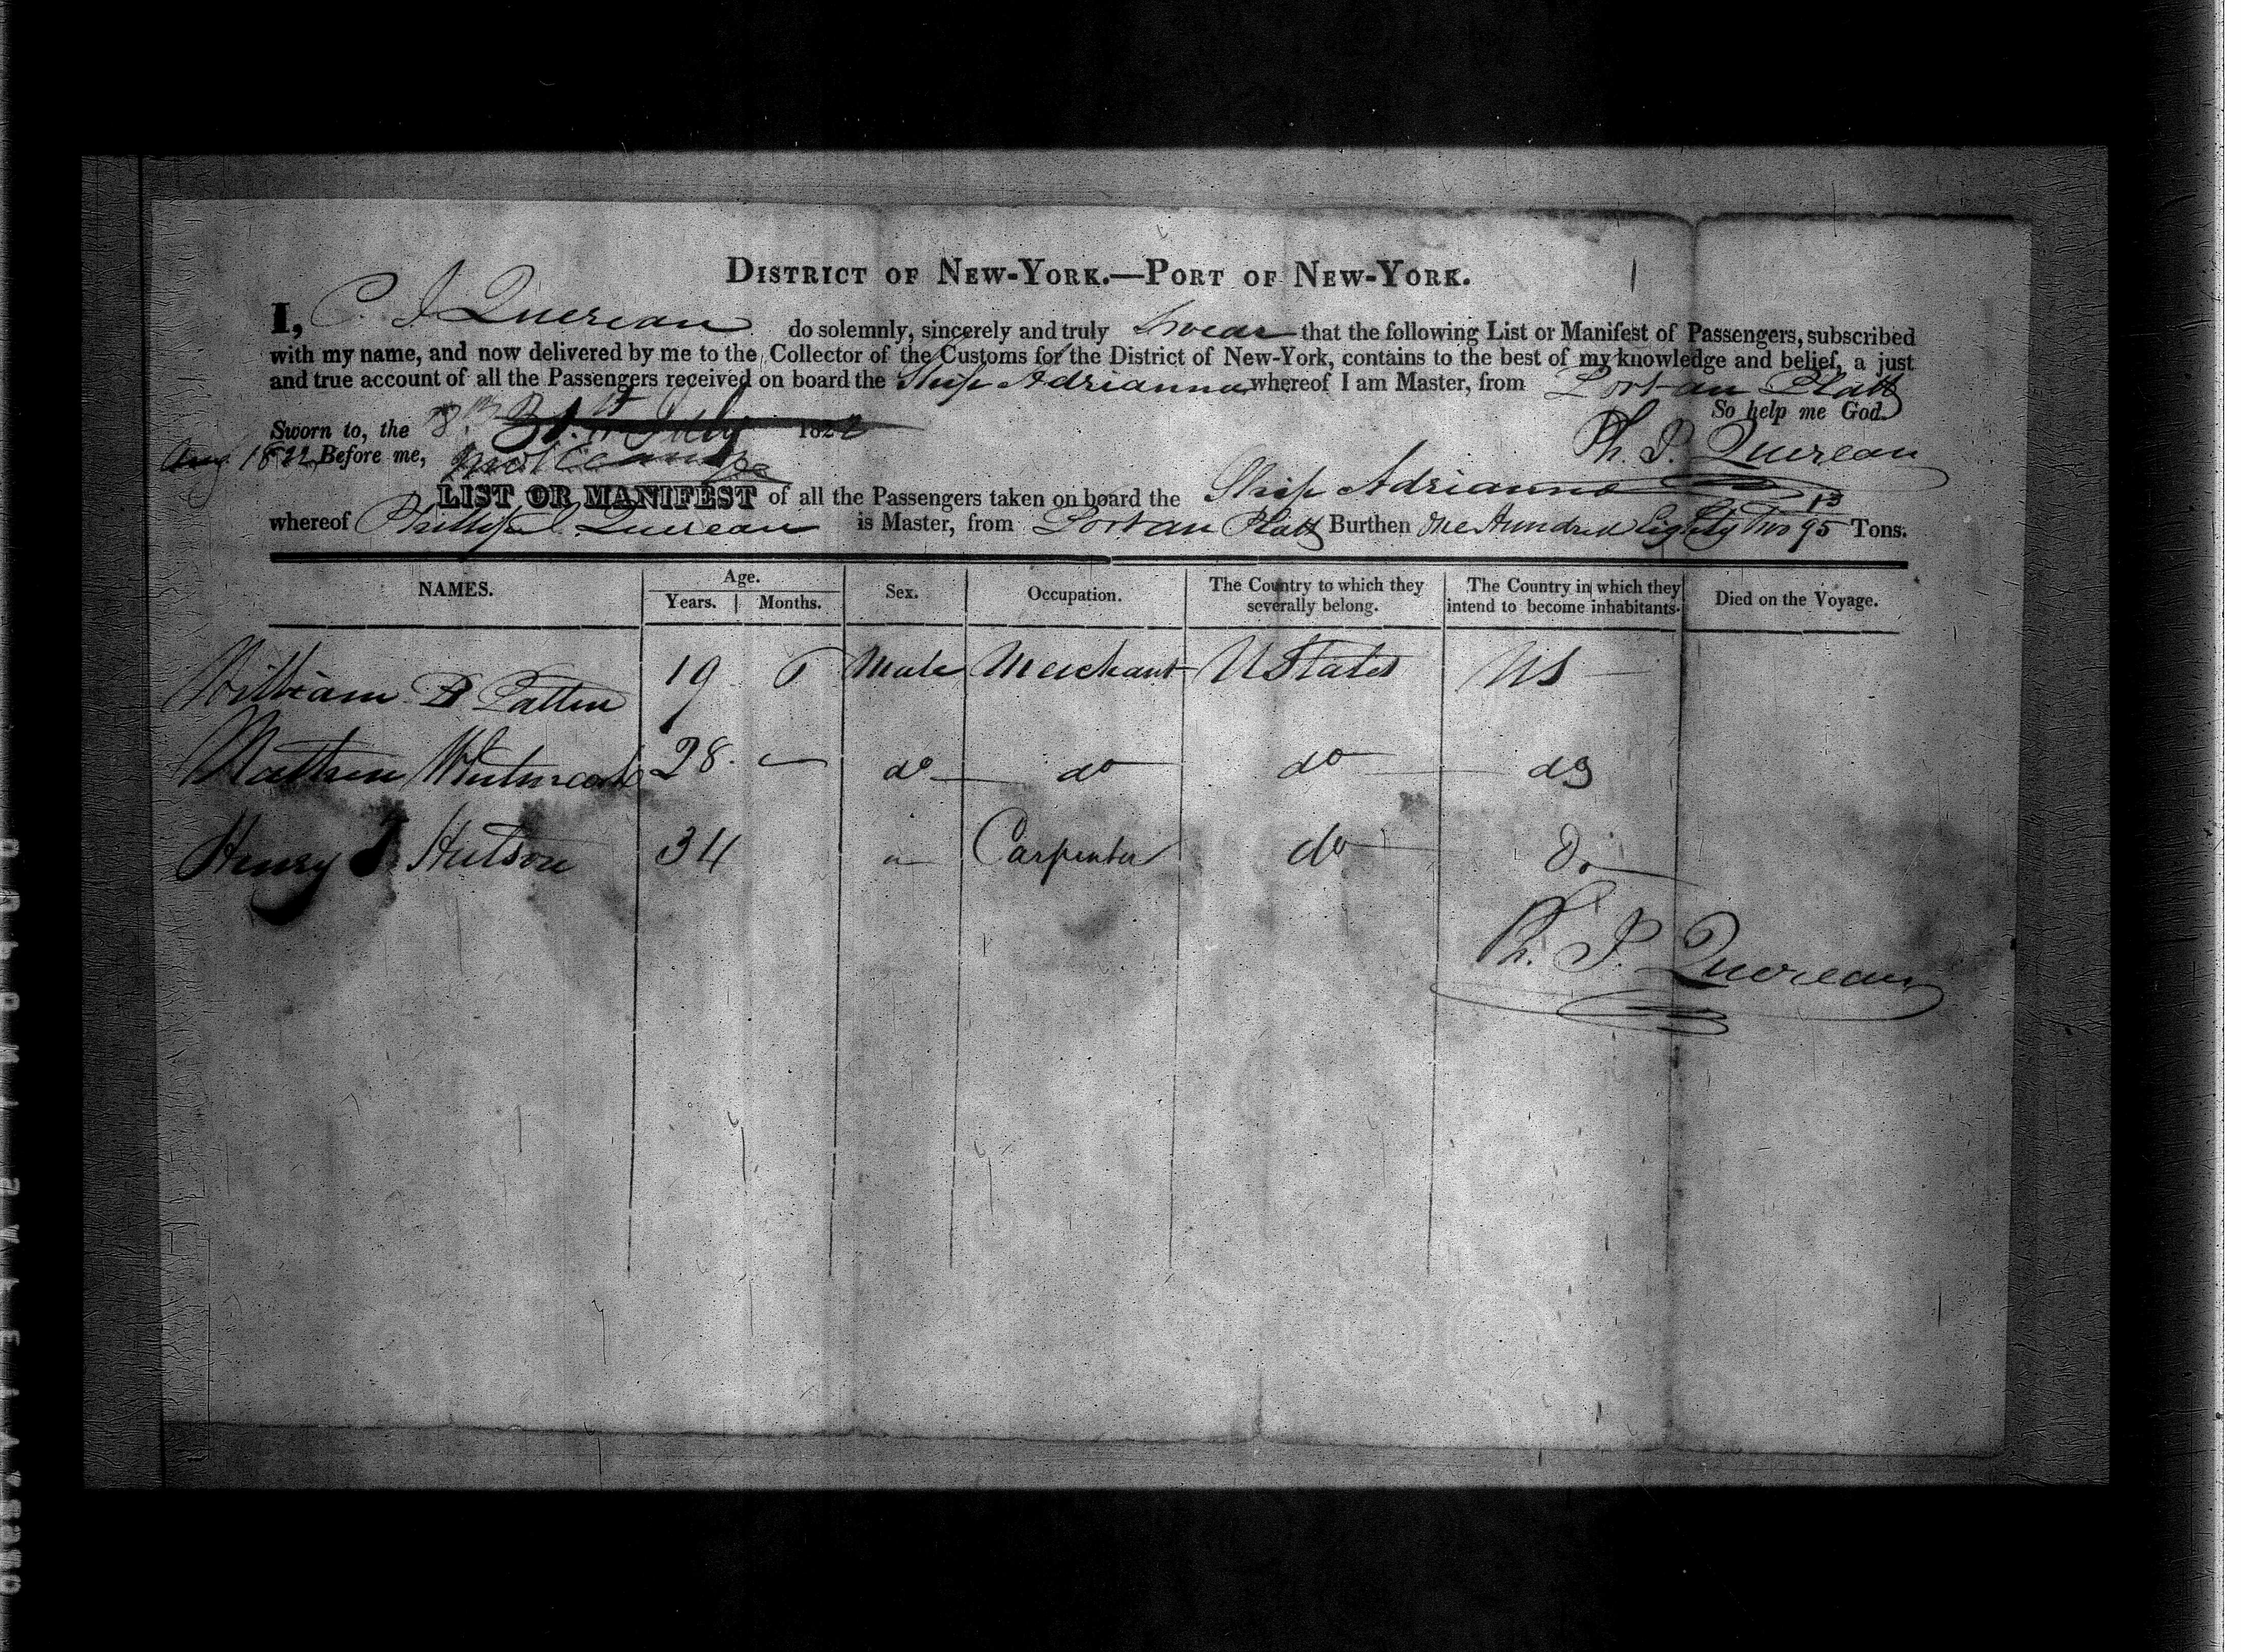 DISTRICT OF NEW-YORK.—PORT OF NEW-YORK.
I, C. J Quereau do solemnly, sincerely and truly Swear that the following List or Manifest of Passengers, subscribed
with my name, and now delivered by me to the Collector of the Customs for the District of New-York, contains to the best of my knowledge and belief, a just
and true account of all the Passengers received on board the Ship Adrianna whereof I am Master, from Port au Platt
So help me God.
Sworn to, the 8th 31st July 1822
Ph. P. Quereau
Aug 1822 Before me,
LIST OR MANIFEST of all the Passengers taken on board the Ship Adrianna
whereof Phillip Quereau is Master, from Port au Platt Burthen One Hundred Eighty Two 13 95 Tons.
NAMES. Age. Years. Months. Sex. Occupation. The Country to which they severally belong. The Country in which they intend to become inhabitants. Died on the Voyage.
William B Patten 19 6 Male Merchant U States US
Nathan 28. — do do do do
Henry Hutson 34 " Carpenter do Do
Ph. P. Quereau